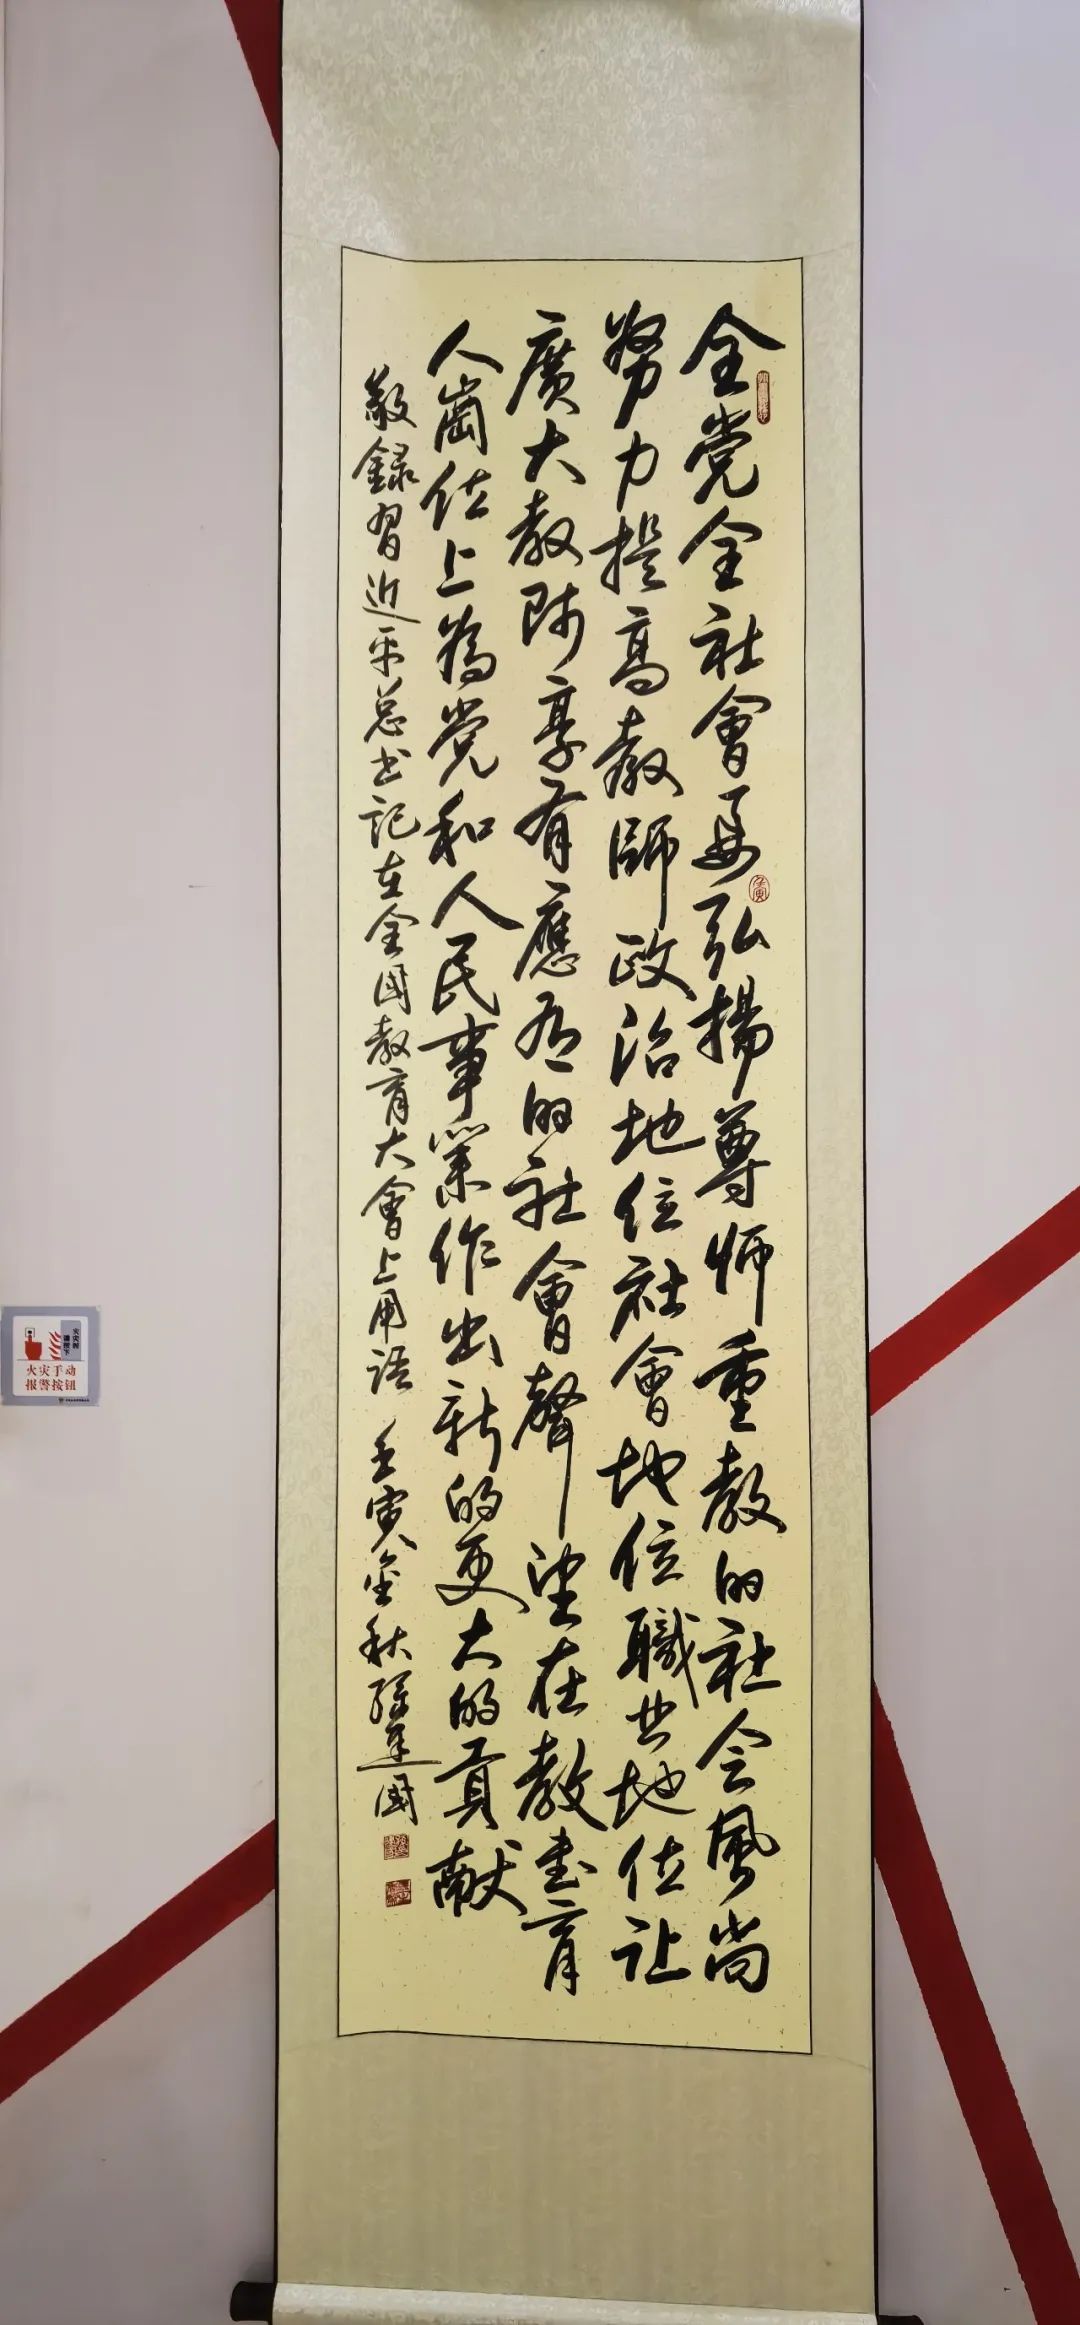 全党全社會要弘揚尊师重教的社会風尚
努力提高教師政治地位社會地位職业地位让
廣大教师享有應有的社會聲望在教书育
人崗位上為党和人民事業作出新的更大的貢献
敬録習近平总书记在全国教育大會上用语 壬寅金秋 孫建國
火灾时
请按下
火灾手动
报警按钮